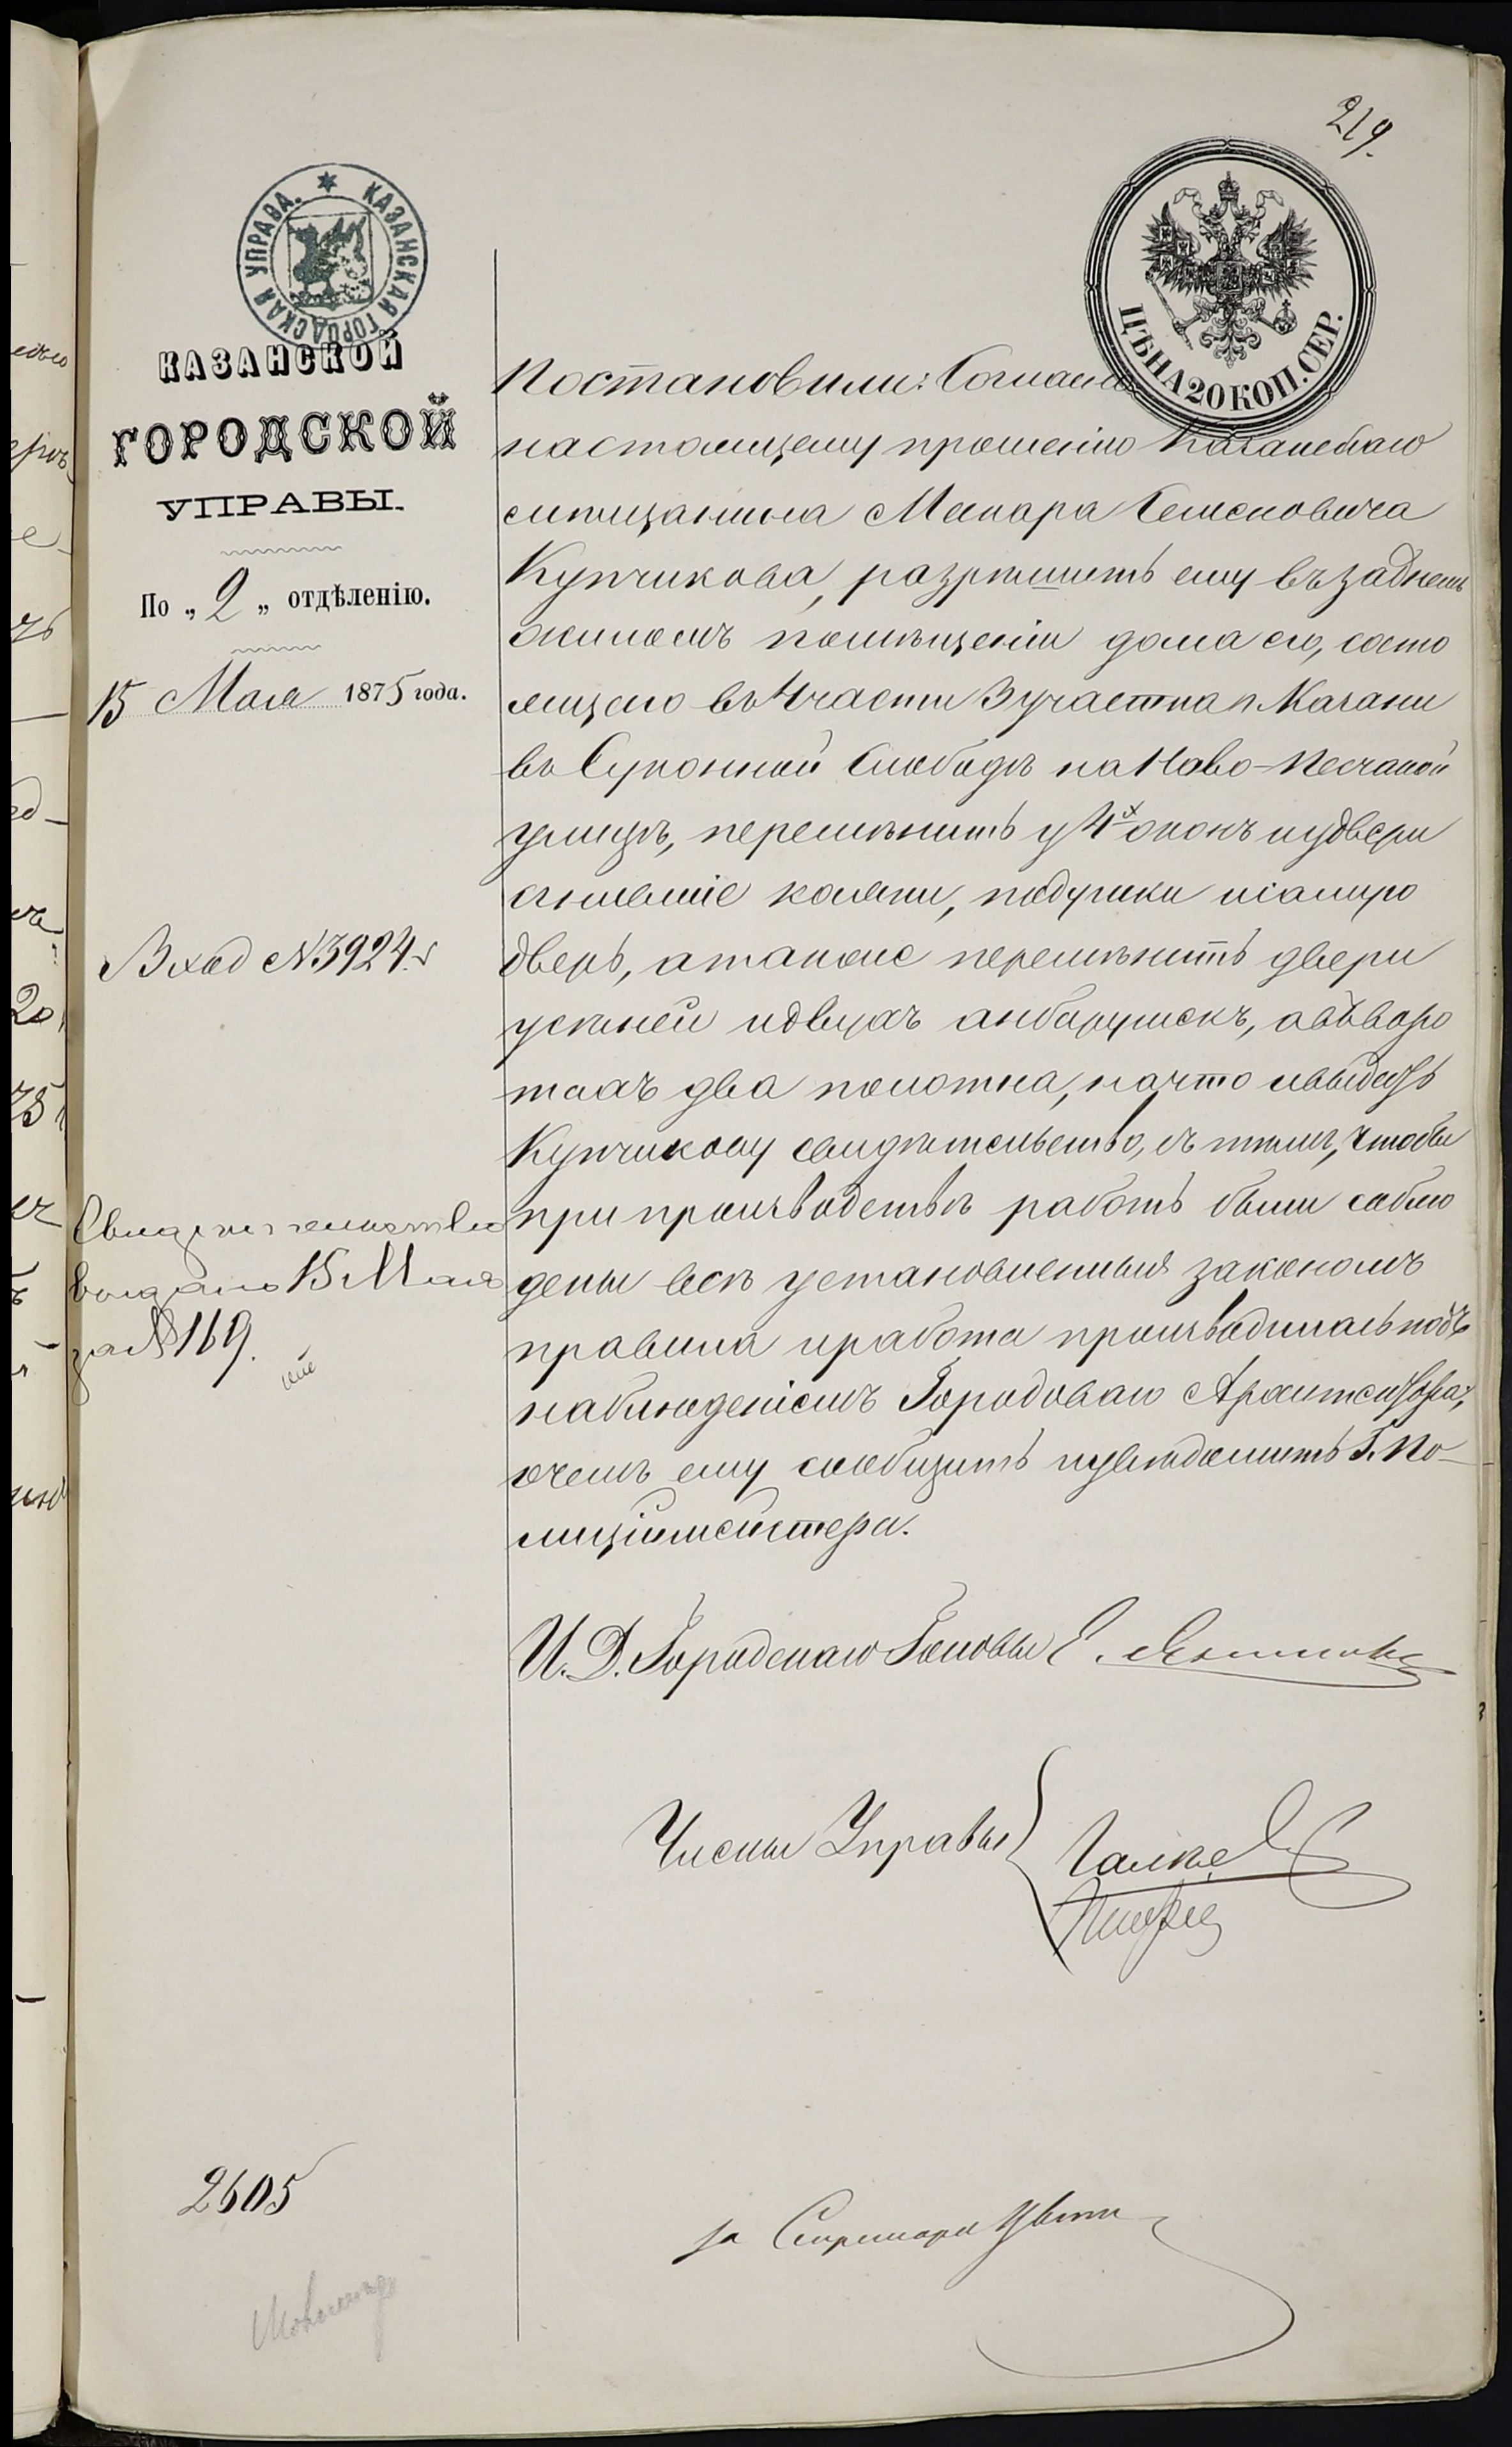 219.
КАЗАНСКАЯ ГОРОДСКАЯ УПРАВА.
ЦѢНА 20 КОП. СЕР.
КАЗАНСКОЙ
ГОРОДСКОЙ
УПРАВЫ.
По „ 2 „ отдѣленію.
15 Мая 1875 года.
Вход № 3924.
Свидѣтельство
выдано 15 Мая
за № 169.
2605
Постановили: Согласно
настоящему прошенію Казанскаго
мѣщанина Макара Семеновича
Купчикова, разрѣшить ему въ заднемъ
жиломъ помѣщеніи дома его, состо
ящаго въ 4 части 3 участка г. Казани
въ Суконной Слободѣ на Ново-Песчаной
улицѣ, перемѣнить у 4х оконъ и у двери
сгнившіе косяки, подушки и самую
дверь, а также перемѣнить двери
у сѣней и двухъ анбарушекъ, а въ воро
тахъ два полотна, на что и выдать
Купчикову свидѣтельство, съ тѣмъ, чтобы
при производствѣ работъ были соблю
дены всѣ установленныя закономъ
правила и работа производилась подъ
наблюденіемъ Городоваго Архитектора,
о чемъ ему сообщить и увѣдомить Г. По-
лиціймейстера.
И. Д. Городскаго Головы Е.
Члены Управы
за Секретаря